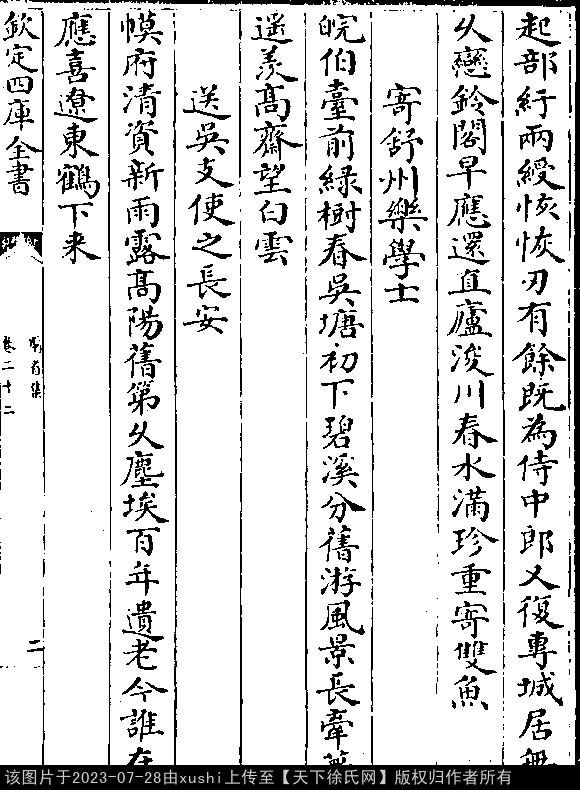 起部紆兩綬恢恢刃有餘既為侍中郎又復專城居無
久戀鈴閣早應還直廬浚川春水滿珍重寄雙魚
寄舒州樂學士
皖伯臺前緑樹春吳塘初下碧溪分舊游風景長牽
遥羡髙齋望白雲
送吳支使之長安
幙府清資新雨露髙陽舊第久塵埃百年遺老今誰在
應喜遼東鶴下来
欽定四庫全書
騎省集
卷二十二
二
该图片于2023-07-28由xushi上传至【天下徐氏网】版权归作者所有